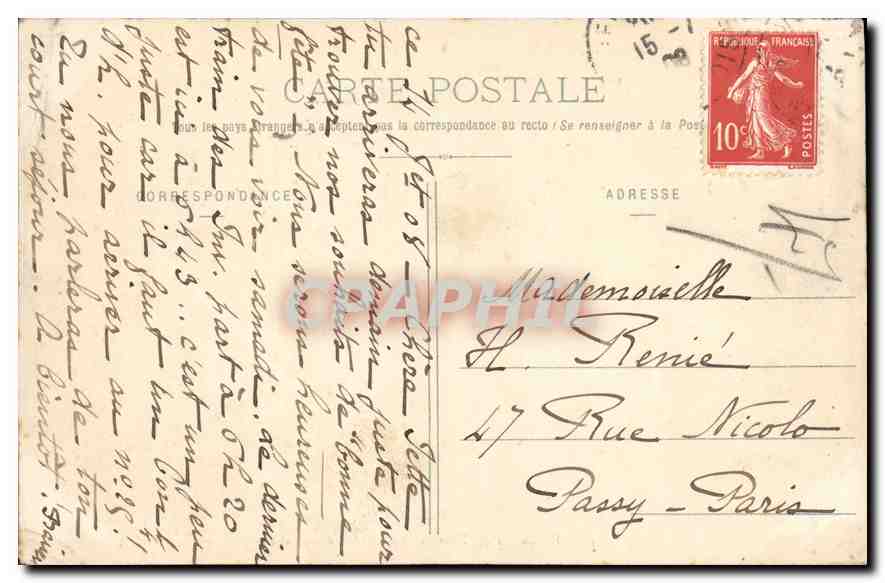 15 - 7
8
RÉPUBLIQUE FRANÇAISE
10c
POSTES
CARTE POSTALE
Tous les pays étrangers n'acceptent pas la correspondance au recto (Se renseigner à la Poste
CORRESPONDANCE
ADRESSE
CPAPHIL
Mademoiselle
H. Renié
47 Rue Nicolo
Passy - Paris
ce 14 Jet 08 - Chère Jette
tu arriveras demain juste pour
trouver nos souhaits de "bonne
fête" - Nous serons heureuses
de vous voir samedi. le dernier
train des Inv. part à 5h 20
est ici à 5h43.. c'est un peu
juste car il faut un bon ¼
d'h. pour arriver au no 25!
Tu nous parleras de ton
court séjour. A bientôt.